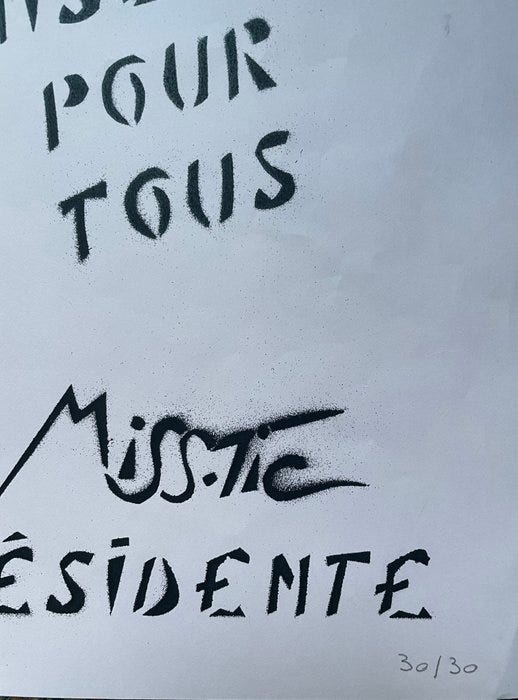 POUR
TOUS
Miss.Tic
ÉSIDENTE
30/30